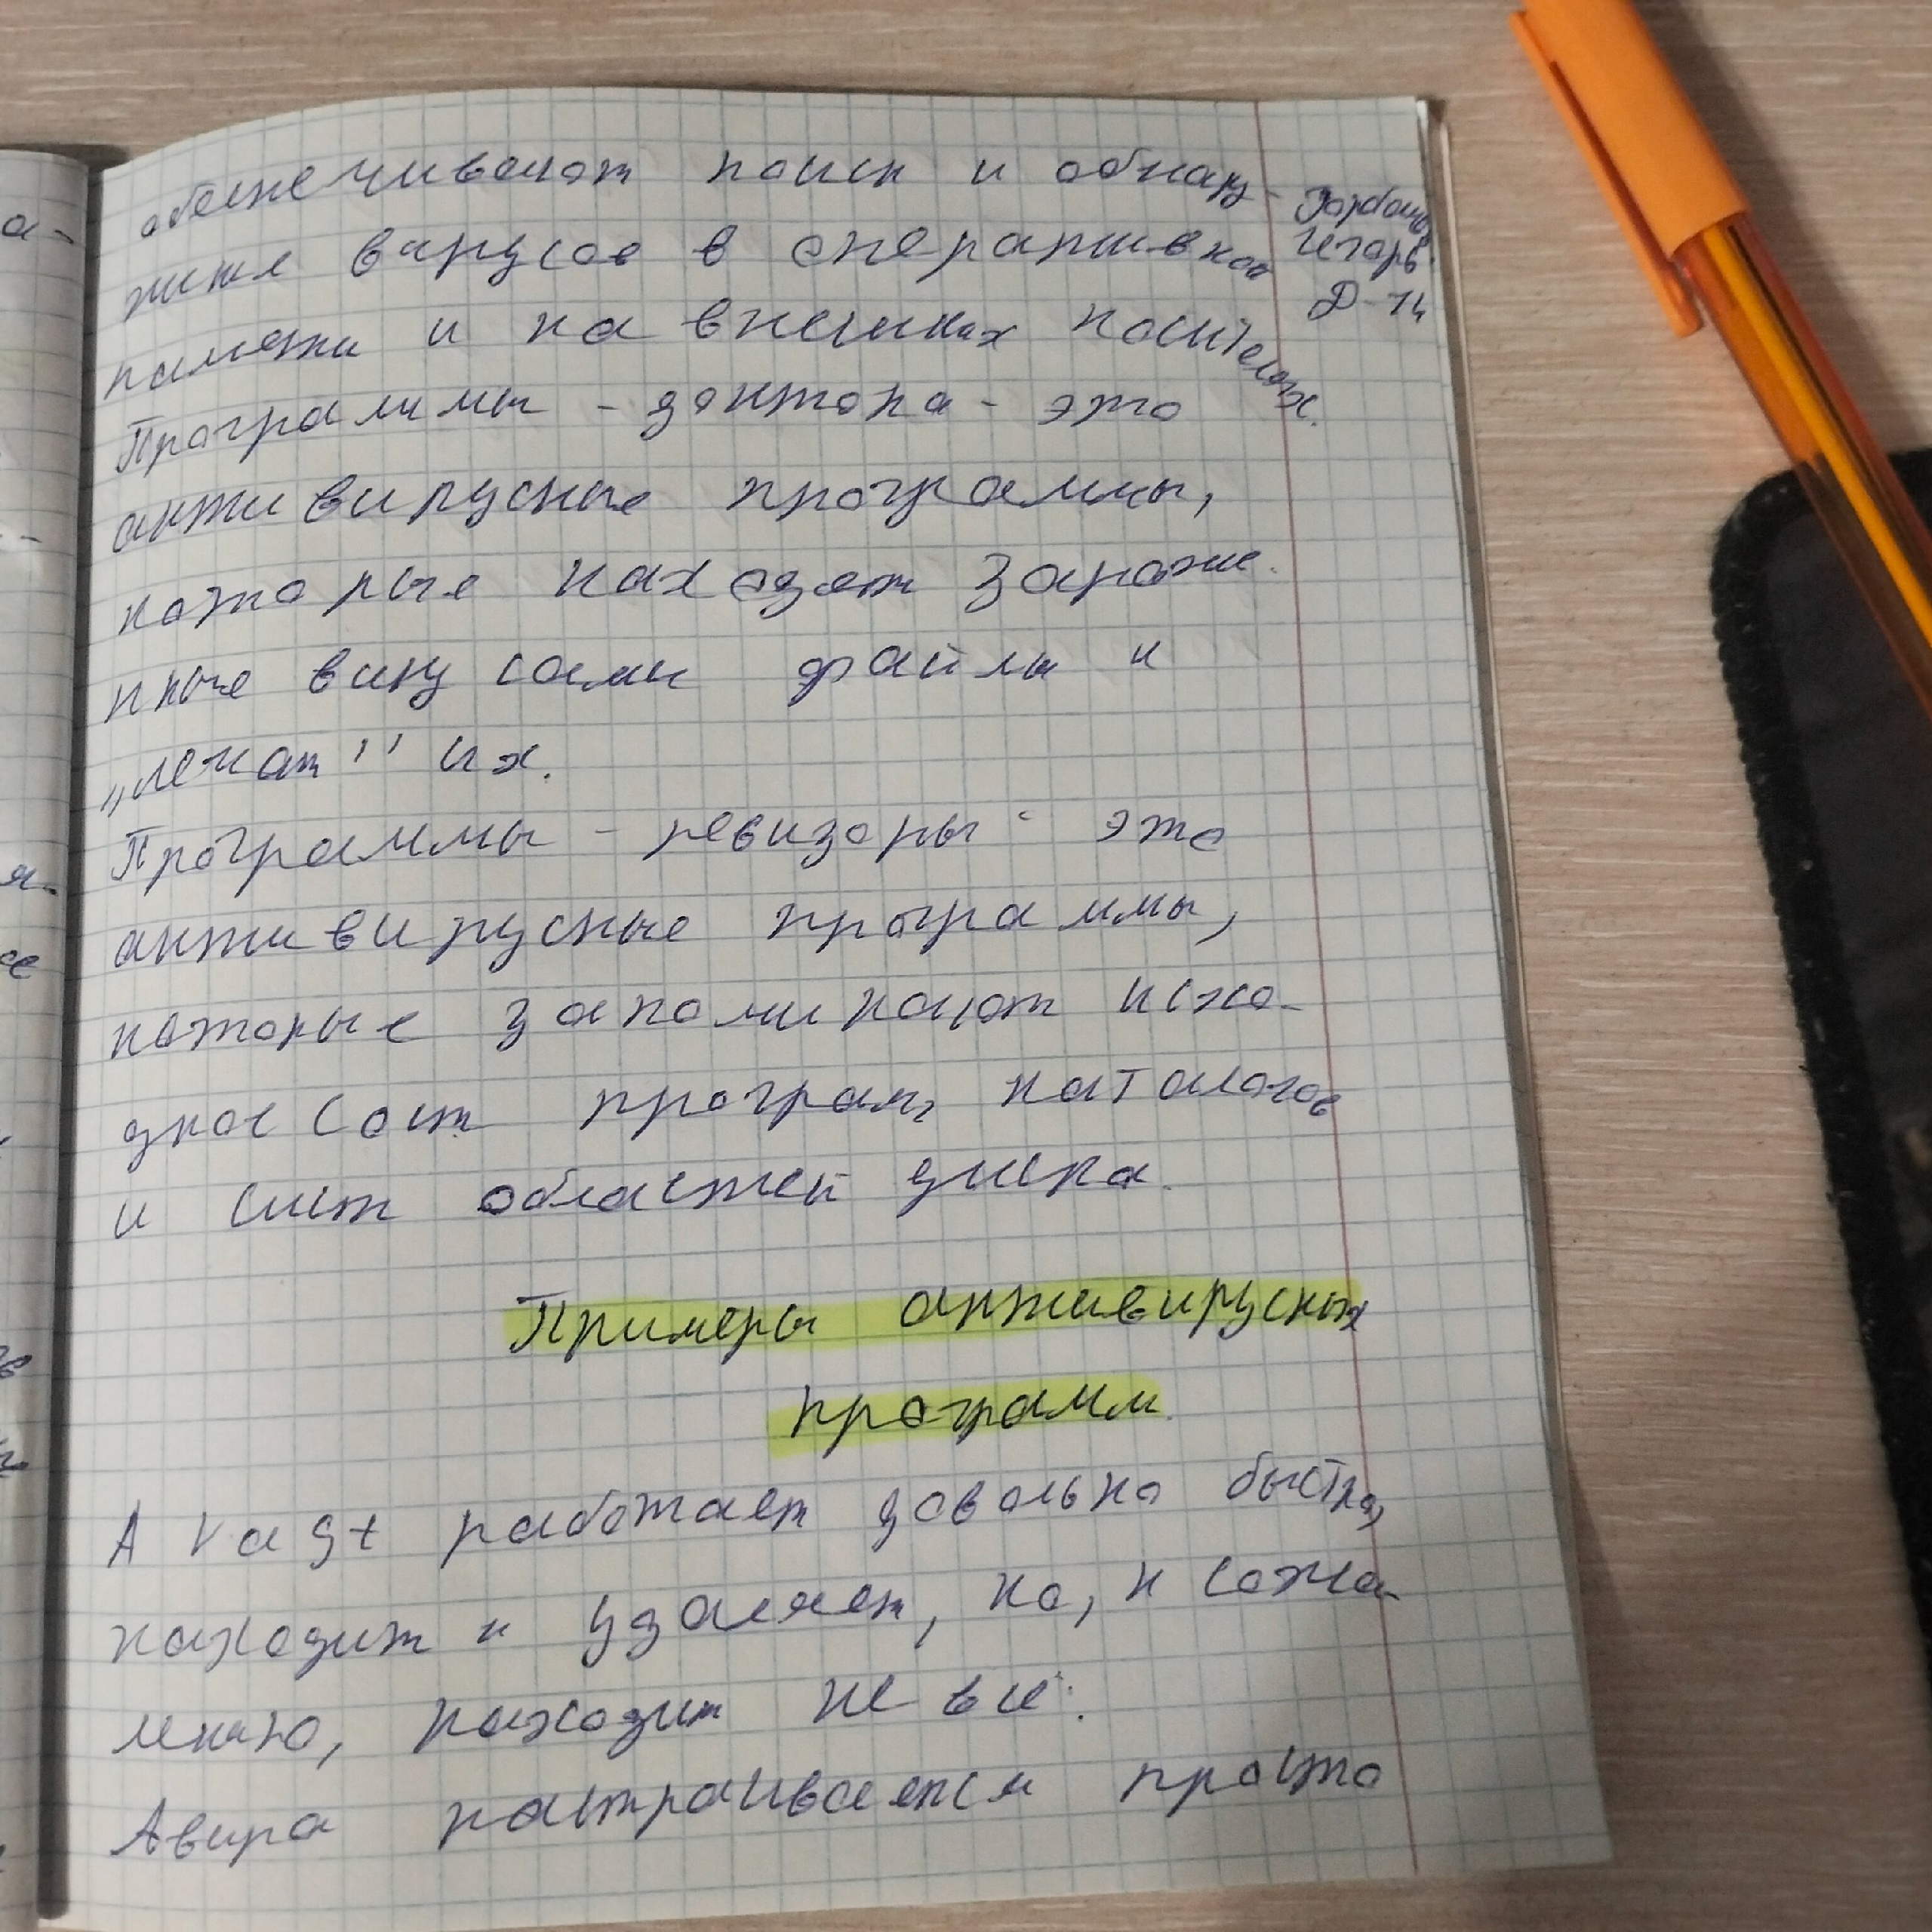 обеспечивают поиск и обнару-
жиние вирусов в оперативной
памяти и на внешних носителях.
Программы - доктора - это
антивирусные программы,
которые находят зараже-
нные вирусами файлы и
„лечат" их.
Программы - ревизоры - это
антивирусные программы,
которые запоминают исхо-
дное сост. програм, каталогов
и сист областей диска.
Примеры антивирусных
программ.
Avast работает довольно быстро,
находит и удаляет, но, к сожа-
лению, находит не всё.
Авира настраивается просто
Игорь
Д-14